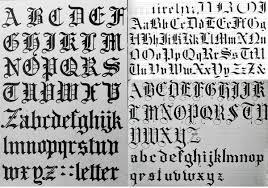 ABCDEF
GHIKLM
NOPQRS
TUVWXYZ
abcdefghijk
lmnopqrstuv
wxyz::letter
AaBbCcDdEeFfGg
HhIiJjKkLlMmNn
OoPpQqRrSsTtUu
VvWwXxYyZz&
ABCDEFGHIJK
LMNOPQRSTUV
WXYZ
abcdefghijklmnop
qrstuvwxyz